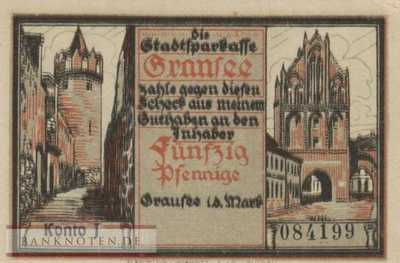 Die
Stadtsparkasse
Gransee
zahle gegen diesen
Scheck aus meinem
Guthaben an den
Inhaber
Fünfzig
Pfennige
Gransee i.d. Mark
Konto J
084199
BANKNOTEN.DE